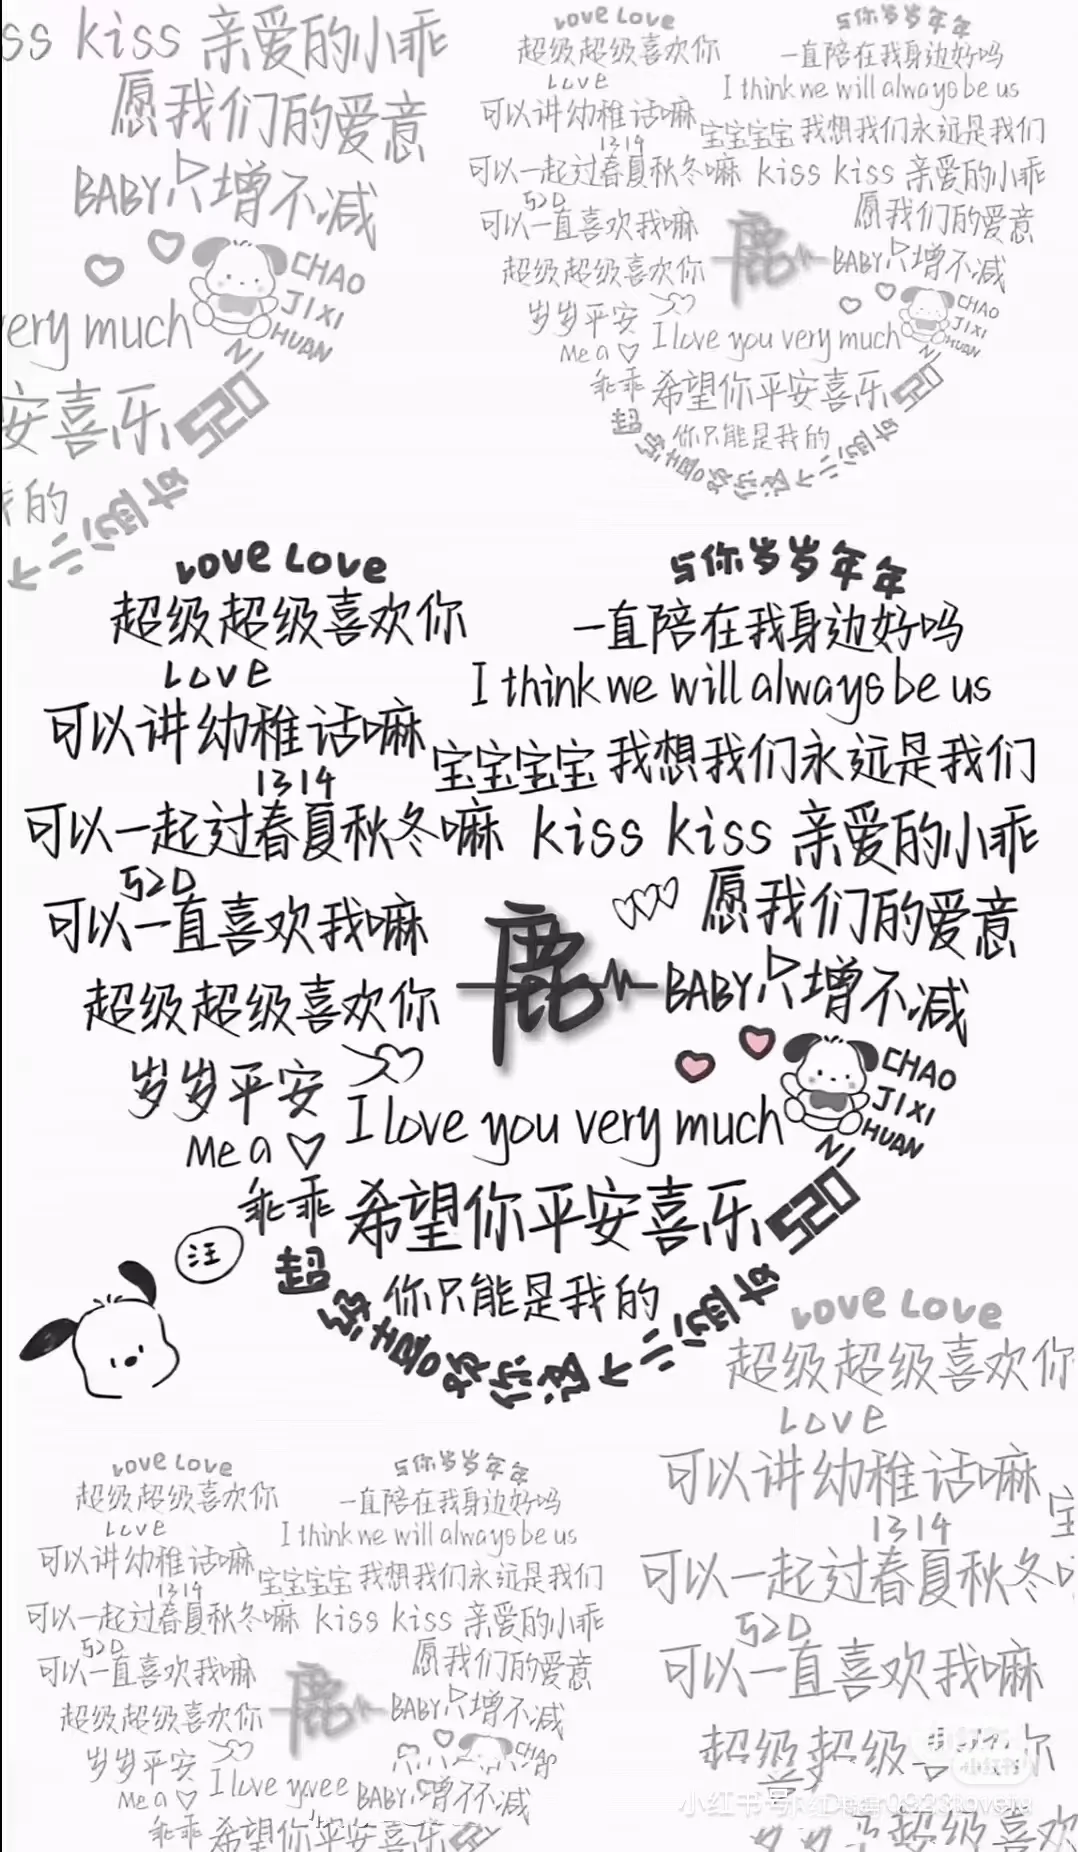 ss kiss 亲爱的小乖
愿我们的爱意
BABY只增不减
CHAO
JIXI
HUAN
NI
very much
安喜乐 520
的
Love Love
超级超级喜欢你
Love
可以讲幼稚话嘛
1314
可以一起过春夏秋冬嘛
520
可以一直喜欢我嘛
超级超级喜欢你
岁岁平安
Me a
乖乖
与你岁岁年年
一直陪在我身边好吗
I think we will always be us
宝宝宝宝 我想我们永远是我们
kiss kiss 亲爱的小乖
愿我们的爱意
鹿
BABY只增不减
CHAO
JIXI
HUAN
NI
I love you very much
希望你平安喜乐 520
你只能是我的
Love Love
超级超级喜欢你
Love
可以讲幼稚话嘛
1314
可以一起过春夏秋冬嘛
520
可以一直喜欢我嘛
超级超级喜欢你
岁岁平安
Me a
乖乖
与你岁岁年年
一直陪在我身边好吗
I think we will always be us
宝宝宝宝 我想我们永远是我们
kiss kiss 亲爱的小乖
愿我们的爱意
鹿
BABY只增不减
CHAO
JIXI
HUAN
NI
I love you very much
希望你平安喜乐 520
你只能是我的
超级喜欢你这个
汪
Love Love
超级超级喜欢你
Love
可以讲幼稚话嘛
1314
可以一起过春夏秋冬嘛
520
可以一直喜欢我嘛
超级超级喜欢你
岁岁平安
Me a
乖乖
与你岁岁年年
一直陪在我身边好吗
I think we will always be us
宝宝宝宝 我想我们永远是我们
kiss kiss 亲爱的小乖
愿我们的爱意
鹿
BABY只增不减
CHAO
I love
BABY
希望你平安喜乐
Love Love
超级超级喜欢你
Love
可以讲幼稚话嘛
1314
可以一起过春夏秋冬
520
可以一直喜欢我嘛
小红书
小红书号
超级喜欢